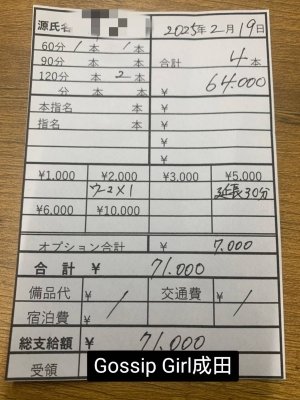 源氏名 2025年2月19日
60分 1本 1本
90分 本 本 合計 4本
120分 本 2本 64.000
分 本 本 ¥
本指名 ¥
指名 ¥
¥
¥
¥1.000 ¥2.000 ¥3.000 ¥5.000
×1 延長30分
¥6.000 ¥10.000
オプション合計 ¥ 7.000
合計 ¥ 71.000
備品代 ¥ / 交通費 ¥ /
宿泊費 ¥
総支給額 ¥ 71.000
受領
Gossip Girl成田